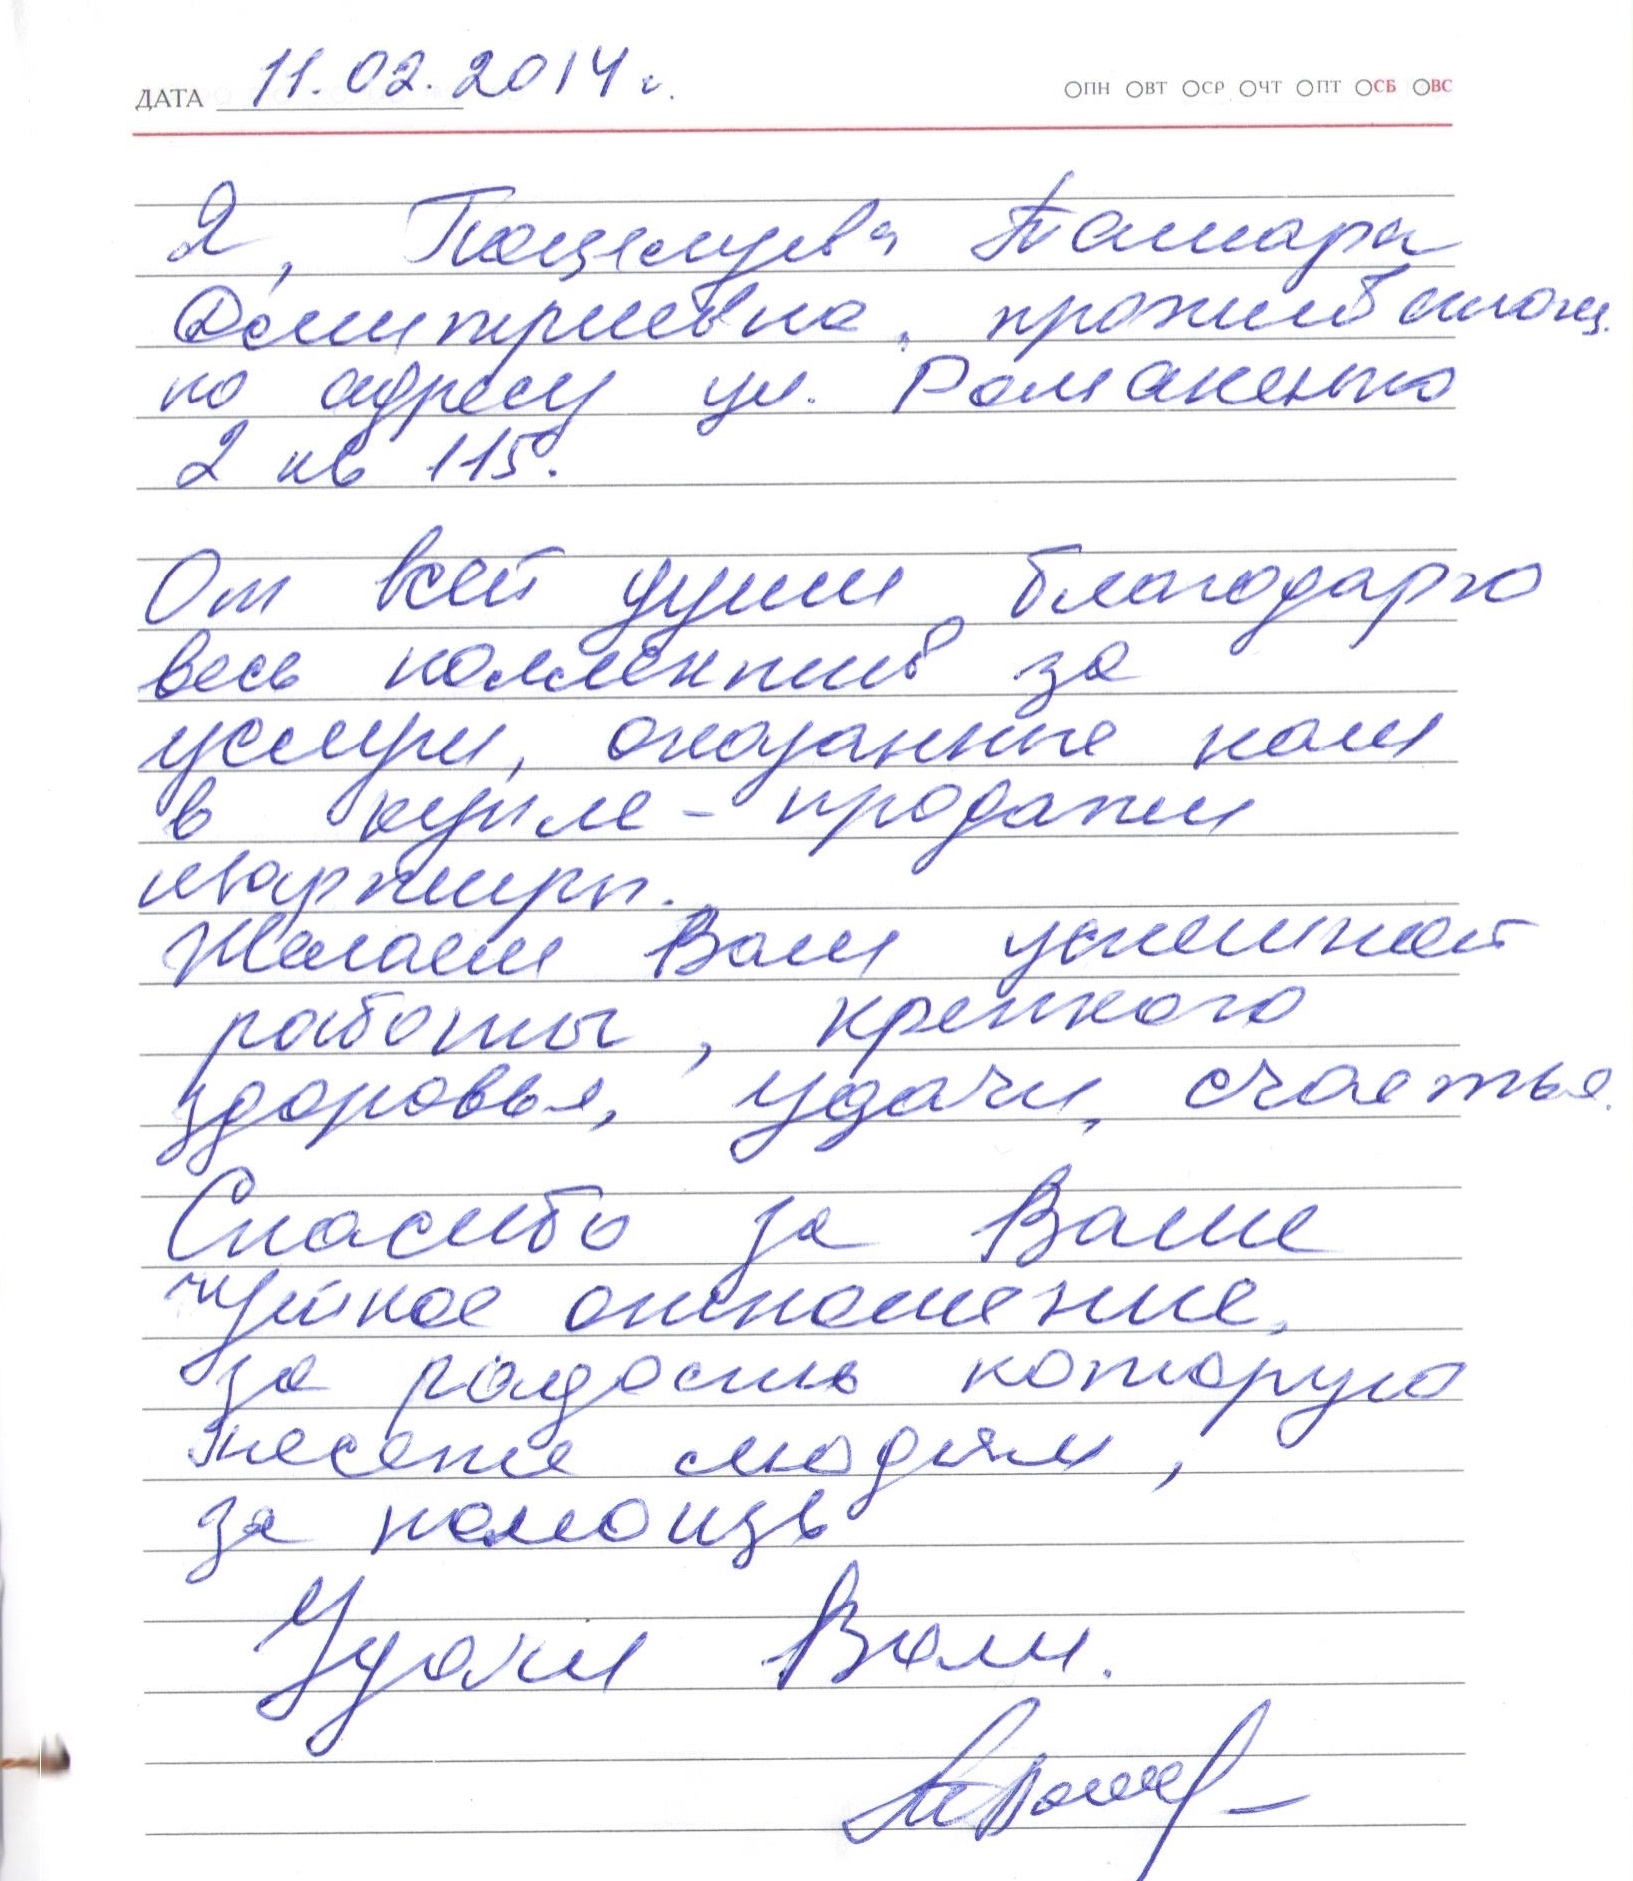 ДАТА 11.02.2014 г. ПН ВТ СР ЧТ ПТ СБ ВС
Я, Поцелуева Тамара
Дмитриевна, проживающ.
по адресу ул. Романенко
2 кв 115.
От всей души благодарю
весь коллектив за
услуги, оказанные нам
в купле - продажи
квартиры.
Желаем Вам успешной
работы, крепкого
здоровья, удачи, счастья.
Спасибо за Ваше
чуткое отношение,
за радость которую
несете людям,
за помощь
Удачи Вам.